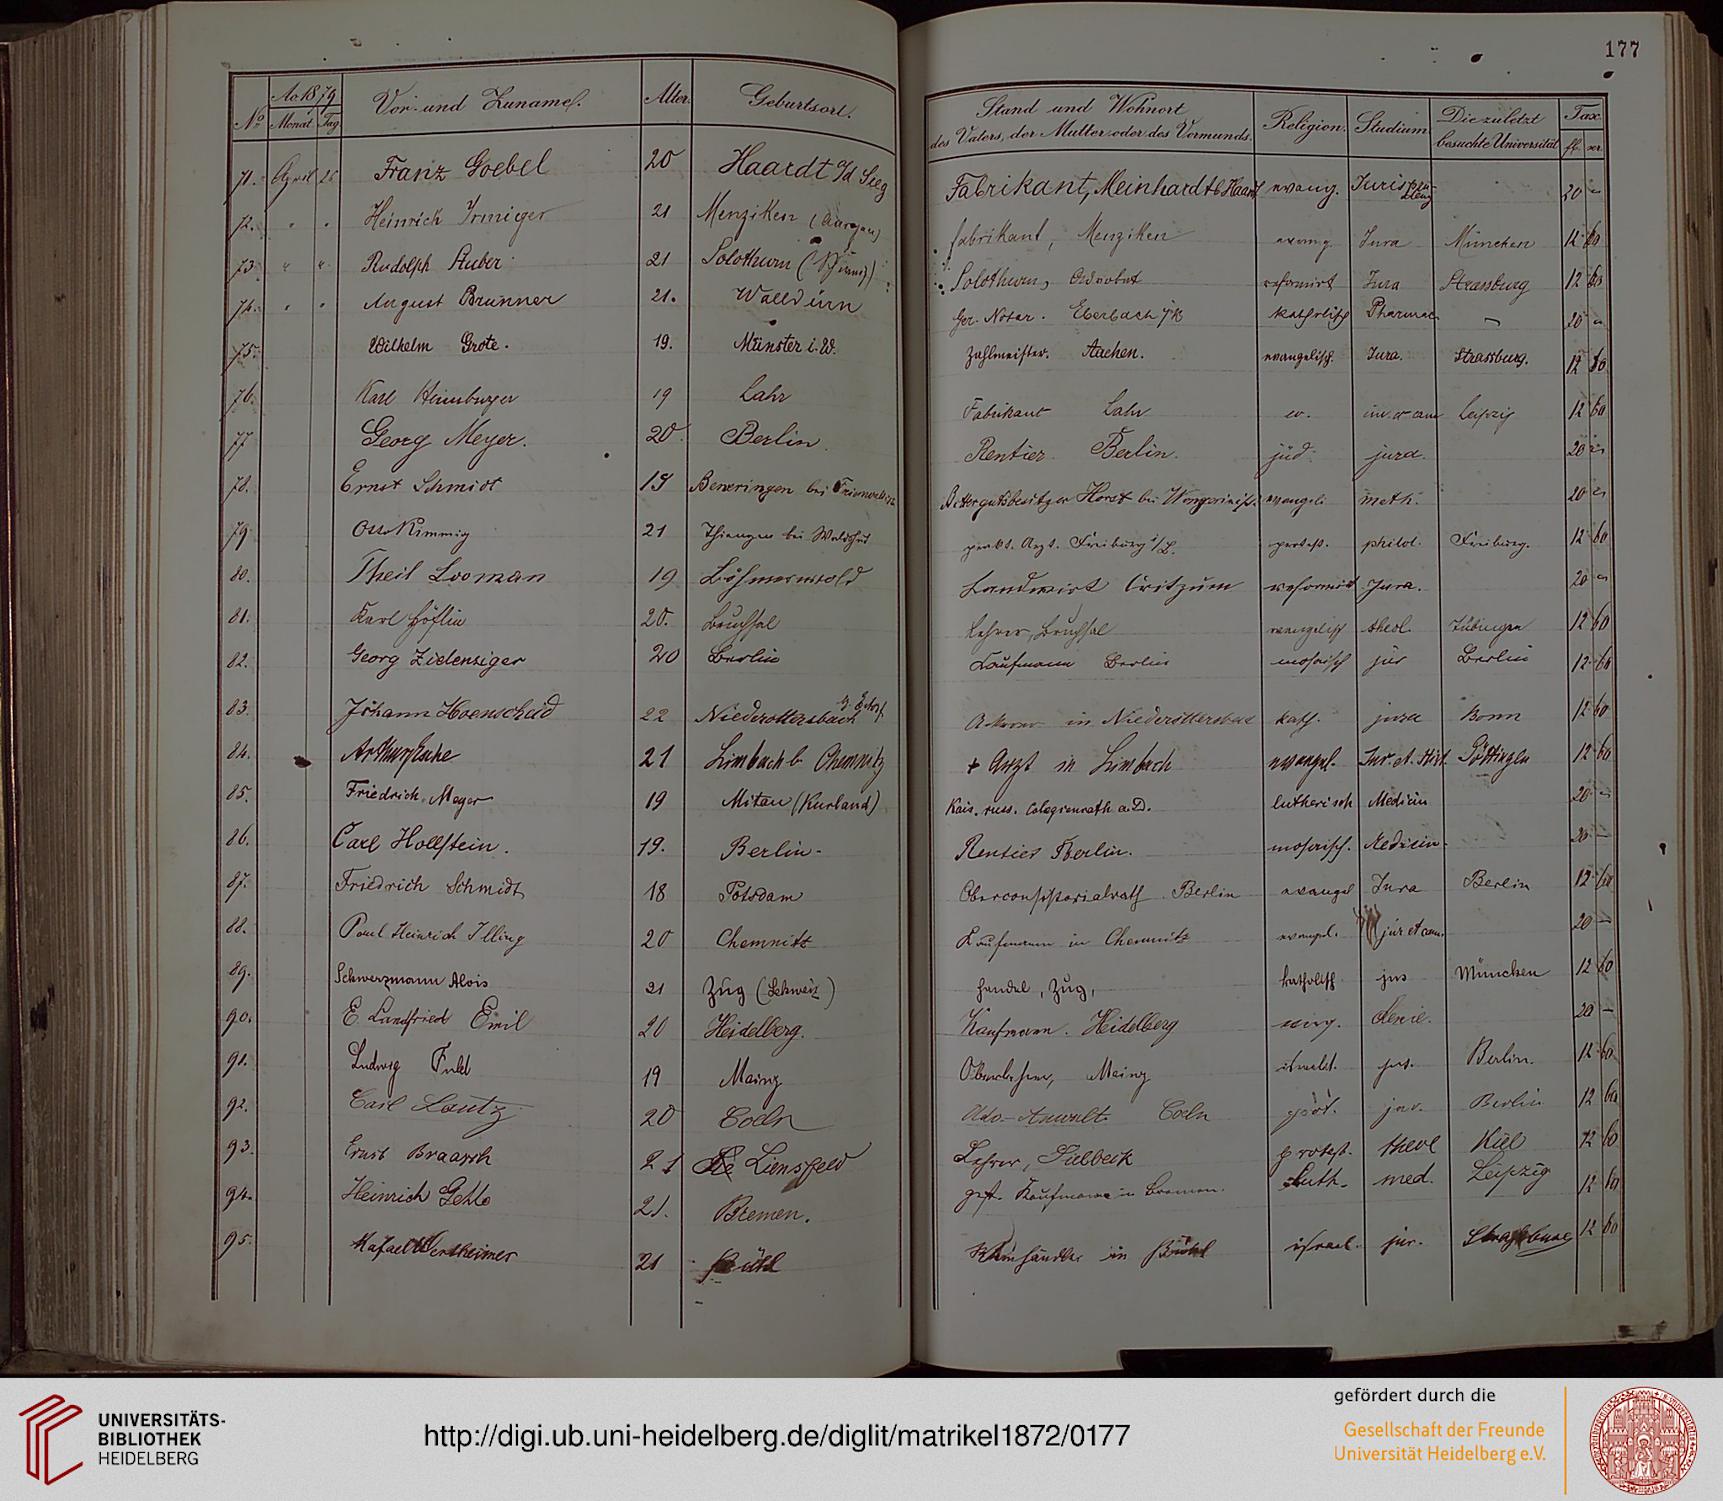 177
No Ao 1879 Monat Tag Vor- und Zuname. Alter. Geburtsort. Stand und Wohnort des Vaters, der Mutter oder des Vormunds. Religion. Studium. Die zuletzt besuchte Universität Tax fl. xr.
71. April 26 Franz Goebel 20 Haardt a/d Sieg Fabrikant, Meinhardt b Haardt evang. Jurisprudenz 20 -
72. " " Heinrich Irmiger 21 Menziken (Aargau) Fabrikant, Menziken evang. Jura München 12 60
73. " " Rudolph Stuber 21 Solothurn (Schweiz) Solothurn, Advokat reformirt Jura Strassburg 12 60
74. " " August Brunner 21. Walldürn Ger. Notar. Eberbach katholisch Pharmac. - 20 -
75. Wilhelm Grote. 19. Münster i. W. Zahlmeister. Aachen. evangelisch. Jura. Strassburg. 12 60
76. Karl Heimburger 19 Lahr Fabrikant Lahr ev. iur. et cam Leipzig 12 60
77 Georg Meyer. 20. Berlin. Rentier Berlin. jüd. jura. 20 -
78. Ernst Schmidt 19 Rittergutsbesitzer Horst bei evangel. math. 20 -
79 Otto Kimmig 21 Thiengen bei Waldshut prakt. Arzt. Freiburg i/B. protest. philol. Freiburg. 12 60
80. Theil Looman 19 Böhmerwold Landwirt Critzum reformirt Jura. 20 -
81. Karl Höflin 20. Bruchsal Lehrer, Bruchsal evangelisch theol. Tübingen 12 60
82. Georg Zielenziger 20 Berlin Kaufmann Berlin mosaisch jur Berlin 12 60
83. Johann Hoenscheid 22 Niederottersbach Ackerer in Niederottersbach kath. jura Bonn 12 60
84. Arthur Esche 21 Limbach b Chemnitz † Arzt in Limbach evangel. Göttingen 12 60
85. Friedrich Meyer 19 Mitau (Kurland) Kais. russ. Colegienrath a. D. lutherisch Medicin 20 -
86. Carl Hollstein. 19. Berlin. Rentier Berlin. mosaisch. Medicin. 20 -
87. Friedrich Schmidt 18 Potsdam Oberconsistorialrath Berlin evangel Jura Berlin 12 60
88. Paul Heinrich Illing 20 Chemnitz Kaufmann in Chemnitz evangel. jur et cam. 20 -
89. Schwerzmann Alois 21 Zug (Schweiz) Handel, Zug, katholisch jus München 12 60
90. E. Landfried Emil 20 Heidelberg. Kaufmann. Heidelberg evang. 20 -
91. Ludwig Fuld 19 Mainz Mainz israelit. jus. Berlin. 12 60
92. Carl Lautz 20 Coeln Adv-Anwalt Coeln prot. jur. Berlin 12 60
93. Ernst Braasch 21 Liensfeld Lehrer, Sielbeck protest. theol Kiel 12 60
94. Heinrich Gehle 21. Bremen. gest. Kaufmann in Bremen. Luth. med. Leipzig 12 60
95. Rafael Wertheimer 21 Bühl Weinhändler in Bühl israel. jur. Strassburg 12 60
UNIVERSITÄTS-
BIBLIOTHEK
HEIDELBERG
http://digi.ub.uni-heidelberg.de/diglit/matrikel1872/0177
gefördert durch die
Gesellschaft der Freunde
Universität Heidelberg e.V.